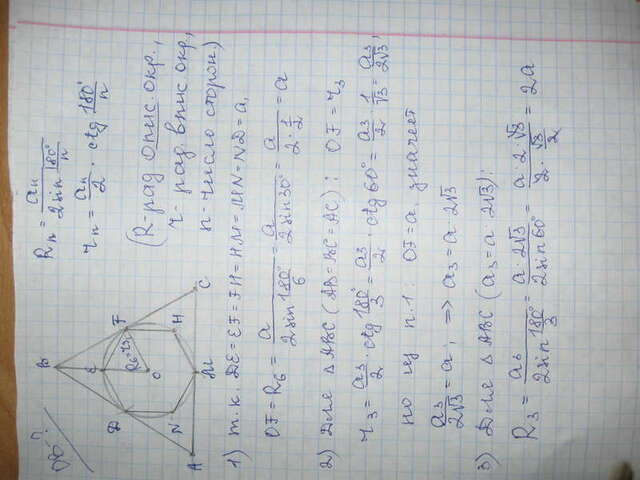 OB-?
B
E
D
F
R₆=r₃
O
N
H
A
M
C
Rₙ = aₙ / (2sin 180°/n)
rₙ = aₙ/2 · ctg 180°/n
(R-рад опис. окр.,
r - рад. впис окр,
n-число сторон)
1) т.к. DE=EF=FH=HM=MN=ND=a,
OF=R₆ = a / (2sin 180°/6) = a / (2sin30°) = a / (2·1/2) = a
2) Для △ABC (AB=BC=AC): OF=r₃
r₃ = a₃/2 · ctg 180°/3 = a₃/2 · ctg 60° = a₃/2 · 1/√3 = a₃/2√3,
но из п.1: OF=a, значит
a₃/2√3 = a; => a₃ = a·2√3
3) Для △ABC (a₃=a·2√3):
R₃ = a₃ / (2sin 180°/3) = a·2√3 / (2sin60°) = a·2·√3 / (2·√3/2) = 2a